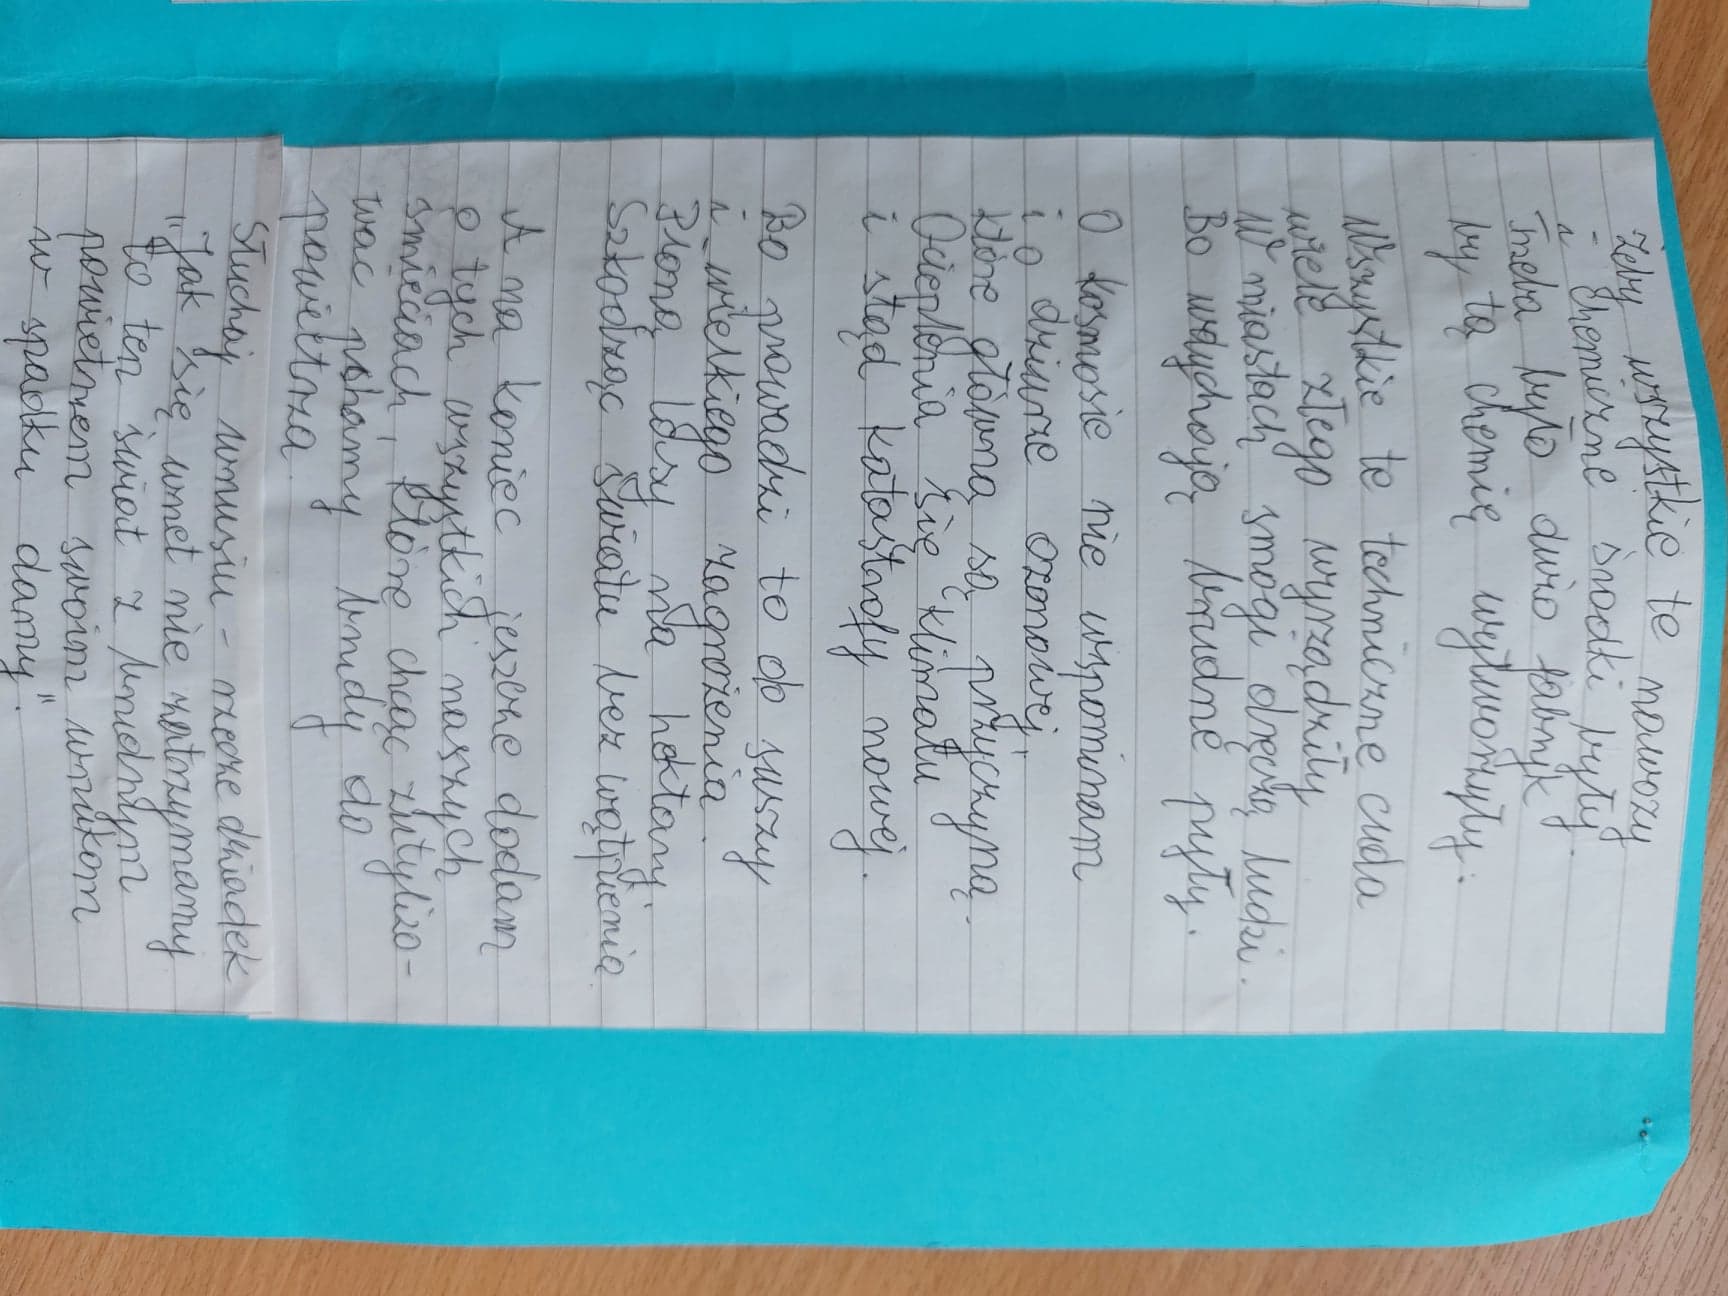 Żeby wszystkie te nawozy
i chemiczne środki były.
Trzeba było dużo fabryk
by tą chemię wytworzyły.
Wszystkie te techniczne cuda
wiele złego wyrządziły
W miastach smogi dręczą ludzi.
Bo wdychają brudne pyły.
O kosmosie nie wspominam
i o dziurze ozonowej,
które główną są przyczyną.
Ocieplenia się klimatu
i stąd katastrofy nowej.
Bo prowadzi to do suszy
i wielkiego zagrożenia.
Płoną lasy na hektary
Szkodząc światu bez wątpienia.
A na koniec jeszcze dodam
o tych wszystkich naszych
śmieciach, które chcąc zutylizo-
wać pchamy brudy do
powietrza.
Słuchaj wnusiu - rzecze dziadek
"Jak się wnet nie zatrzymamy
to ten świat z brudnym
powietrzem swoim wnukom
w spadku damy".